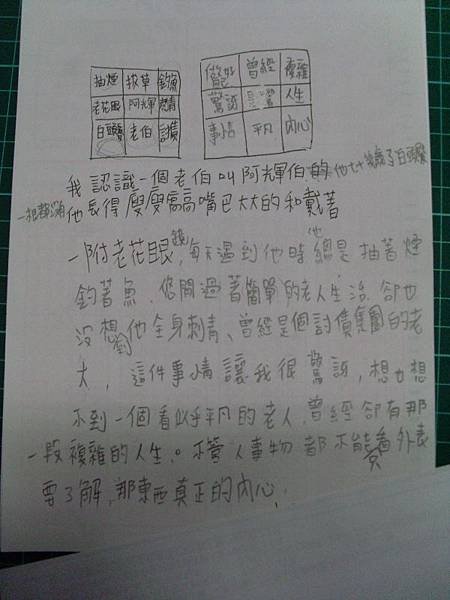 抽煙 拔草 釣魚
老花眼 阿輝 刺青
白頭髮 老伯 討債
曾經 複雜
驚訝 人生
事情 平凡 內心
我認識一個老伯叫阿輝伯 他七十幾歲了白頭髮
他長得瘦瘦高高嘴巴大大的和戴著
一附老花眼鏡,每次遇到他時他總是抽著煙
釣著魚、悠閒過著簡單的老人生活 卻也
沒想到他全身刺青、曾經是個討債集團的老
大,這件事情讓我很驚訝,想也想
不到一個看似乎平凡的老人,曾經卻有那
一段複雜的人生。不管人事物都不能看外表
要了解,那東西真正的內心,